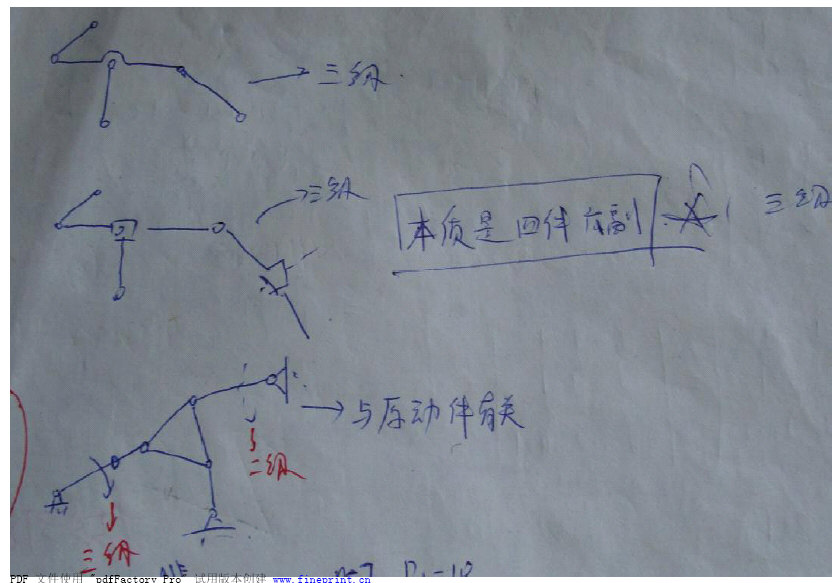 三级
三级
本质是四件六副
三级
与原动件有关
二级
三级
n=7 PL=10
PDF 文件使用 "pdfFactory Pro" 试用版本创建 www.fineprint.cn